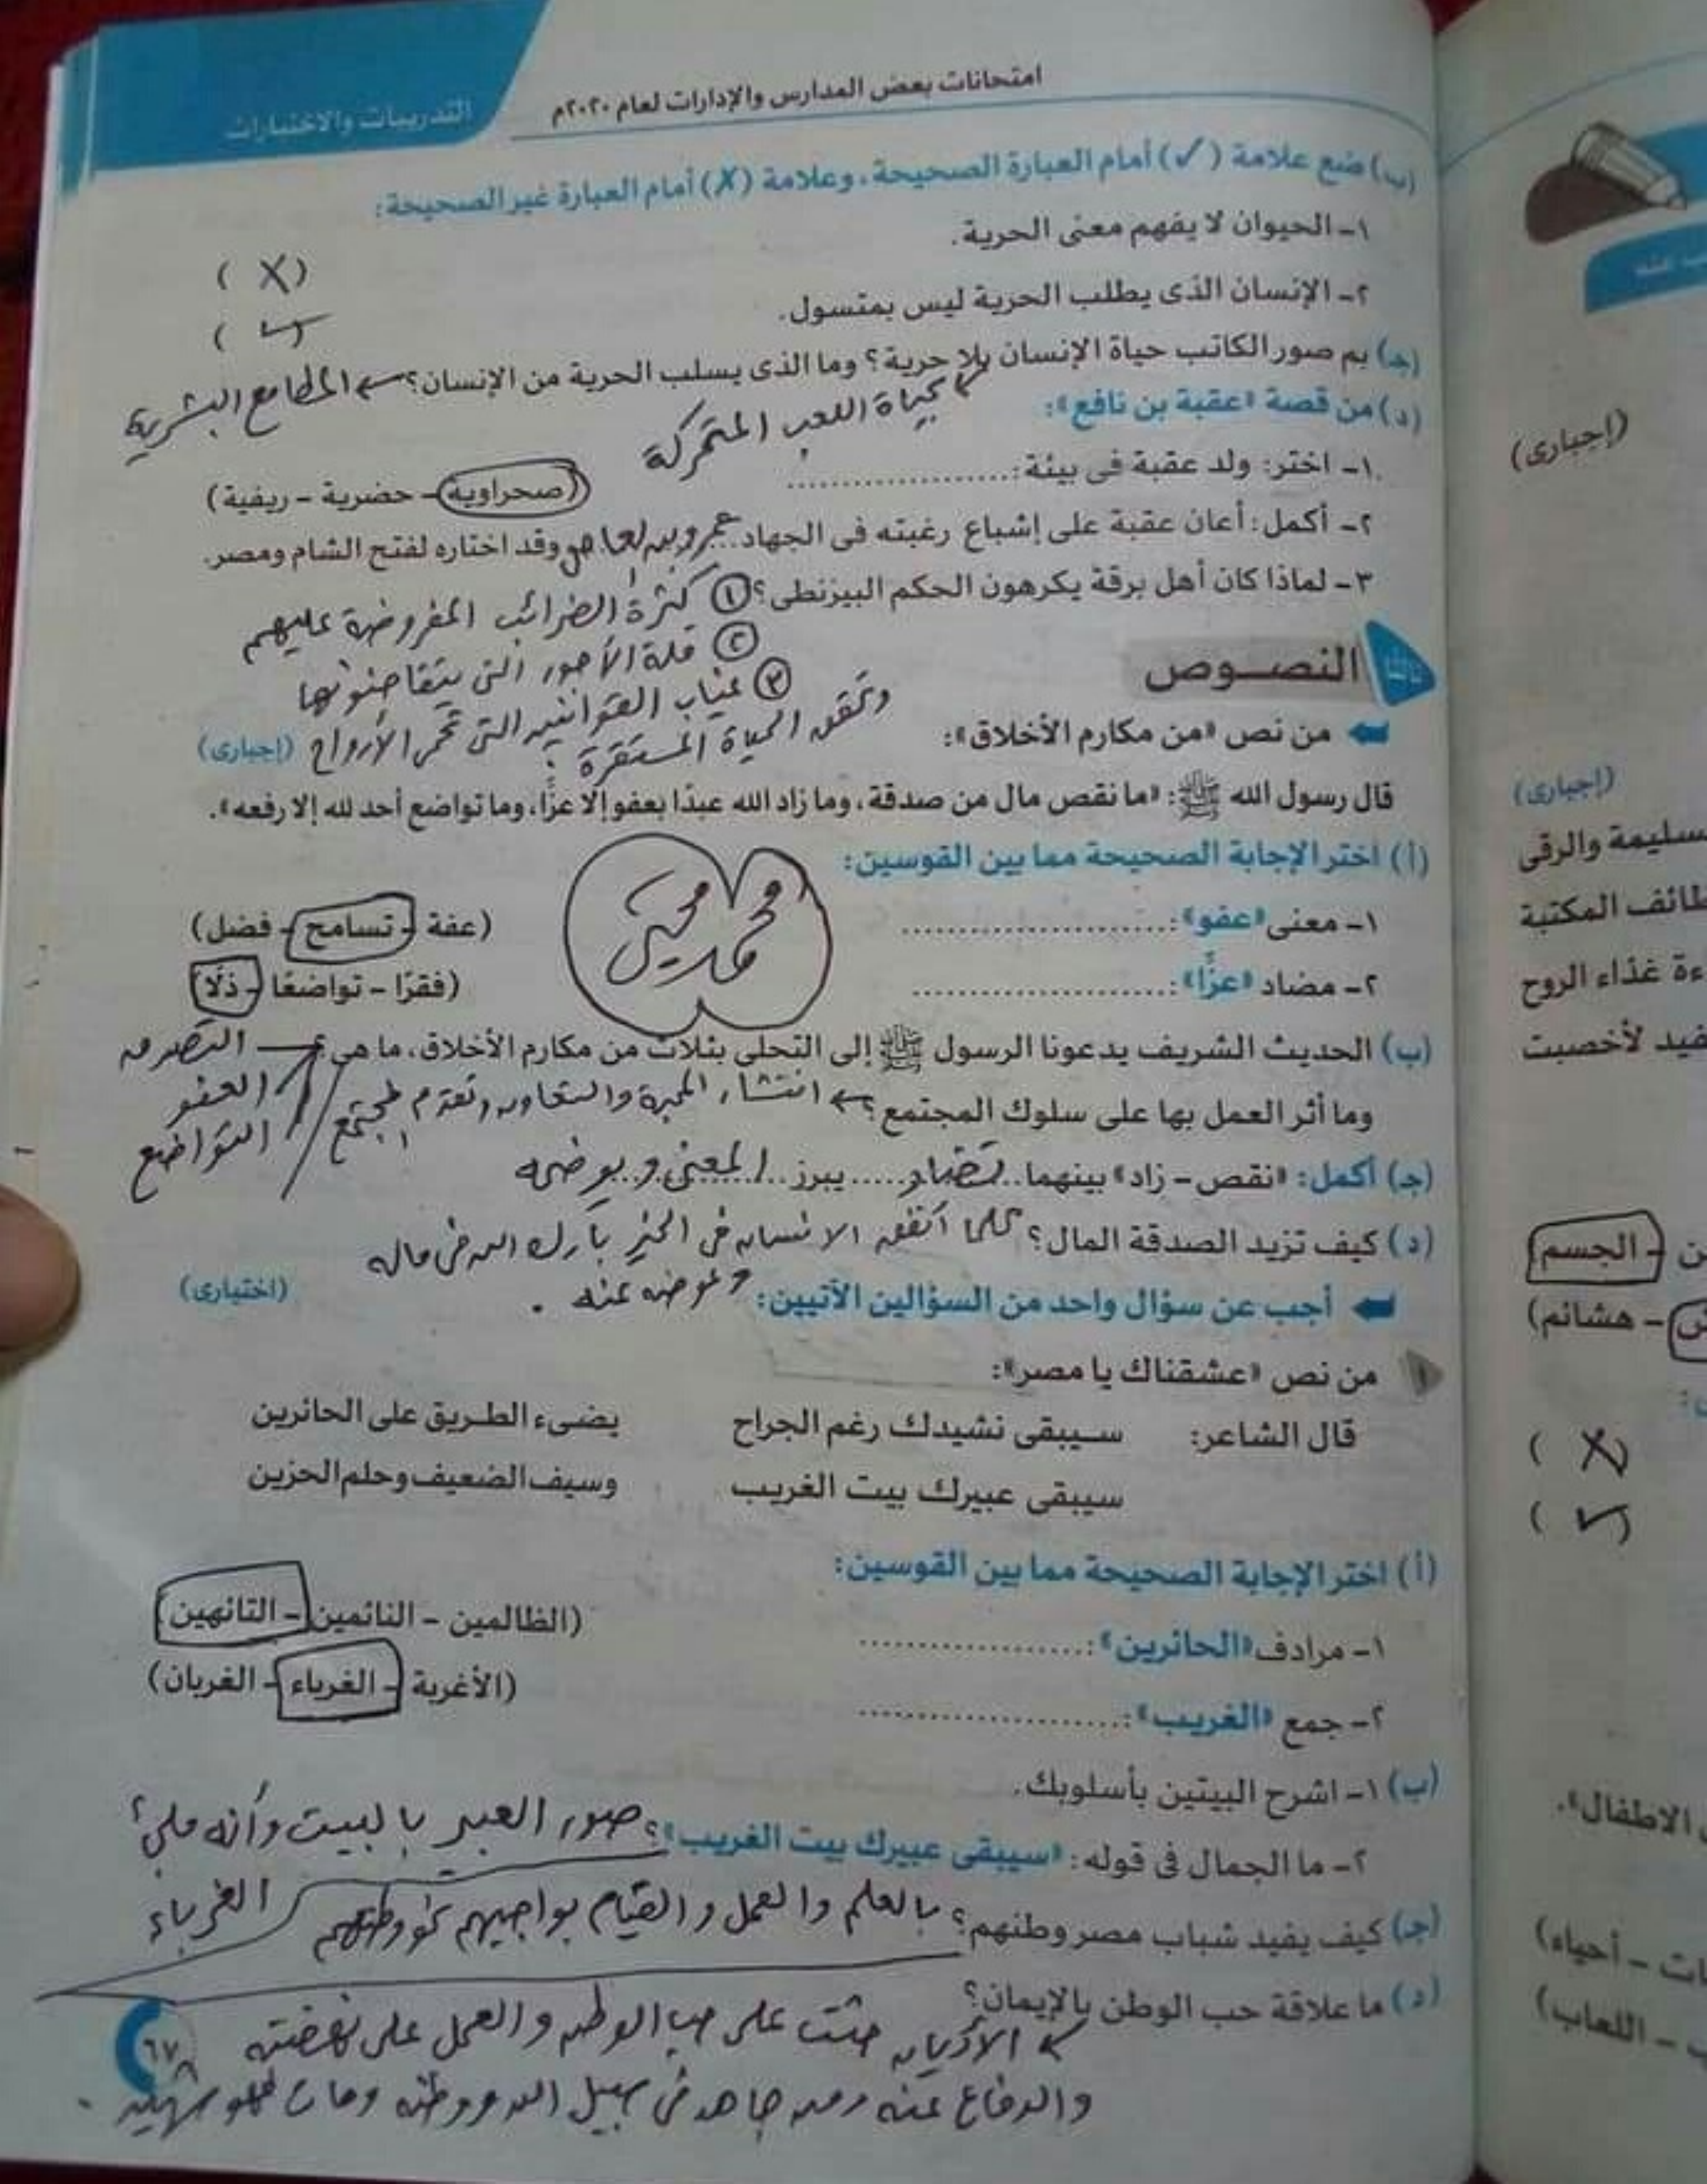 امتحانات بعض المدارس والإدارات لعام ٢٠٢٠م
التدريبات والاختبارات
(ب) ضع علامة (✓) أمام العبارة الصحيحة، وعلامة (X) أمام العبارة غير الصحيحة:
١- الحيوان لا يفهم معنى الحرية.
( X )
٢- الإنسان الذى يطلب الحرية ليس بمتسول.
( ✓ )
(جـ) بم صور الكاتب حياة الإنسان بلا حرية؟ وما الذى يسلب الحرية من الإنسان؟ المطامع البشرية
بحياة اللعب المتحركة
(د) من قصة «عقبة بن نافع»:
١- اختر: ولد عقبة فى بيئة: ....................
(صحراوية - حضرية - ريفية)
٢- أكمل: أعان عقبة على إشباع رغبته فى الجهاد عمرو بن العاص وقد اختاره لفتح الشام ومصر.
٣- لماذا كان أهل برقة يكرهون الحكم البيزنطى؟ ① كثرة الضرائب المفروضة عليهم
② قلة الأجور التى يتقاضونها
③ غياب القوانين التى تحمى الأرواح
وتحقق الحياة المستقرة.
ثالثا النصوص
من نص «من مكارم الأخلاق»:
(إجبارى)
قال رسول الله ﷺ: «ما نقص مال من صدقة، وما زاد الله عبدًا بعفو إلا عزًّا، وما تواضع أحد لله إلا رفعه».
(أ) اختر الإجابة الصحيحة مما بين القوسين:
١- معنى «عفو»: ........................
(عفة - تسامح - فضل)
٢- مضاد «عزًّا»: ........................
(فقرًا - تواضعًا - ذلًّا)
(ب) الحديث الشريف يدعونا الرسول ﷺ إلى التحلى بثلاث من مكارم الأخلاق، ما هى؟ التصدق
العفو
التواضع
وما أثر العمل بها على سلوك المجتمع؟ انتشار المحبة والتعاون وتقدم المجتمع
(جـ) أكمل: «نقص - زاد» بينهما تضاد يبرز المعنى ويوضحه
(د) كيف تزيد الصدقة المال؟ كلما أنفق الانسان فى الخير بارك الله فى ماله
وعوضه عنه.
أجب عن سؤال واحد من السؤالين الآتيين:
(اختيارى)
١ من نص «عشقناك يا مصر»:
قال الشاعر: سيبقى نشيدك رغم الجراح يضىء الطريق على الحائرين
سيبقى عبيرك بيت الغريب وسيف الضعيف وحلم الحزين
(أ) اختر الإجابة الصحيحة مما بين القوسين:
١- مرادف «الحائرين»: ....................
(الظالمين - النائمين - التائهين)
٢- جمع «الغريب»: ........................
(الأغربة - الغرباء - الغربان)
(ب) ١- اشرح البيتين بأسلوبك.
٢- ما الجمال فى قوله: «سيبقى عبيرك بيت الغريب»؟ صور العبير بالبيت وأنه ملئ
الغرباء
(جـ) كيف يفيد شباب مصر وطنهم؟ بالعلم والعمل والقيام بواجبهم نحو وطنهم
(د) ما علاقة حب الوطن بالإيمان؟
الأديان حثت على حب الوطن والعمل على نهضته
والدفاع عنه ومن جاهد فى سبيل الله ووطنه ومات فهو شهيد.
٦٧
(إجبارى)
(إجبارى)
والرقى
المكتبة
غذاء الروح
لأخصبت
- الجسم
- هشائم)
( X )
( ✓ )
الاطفال».
- أحياء)
- اللعاب)